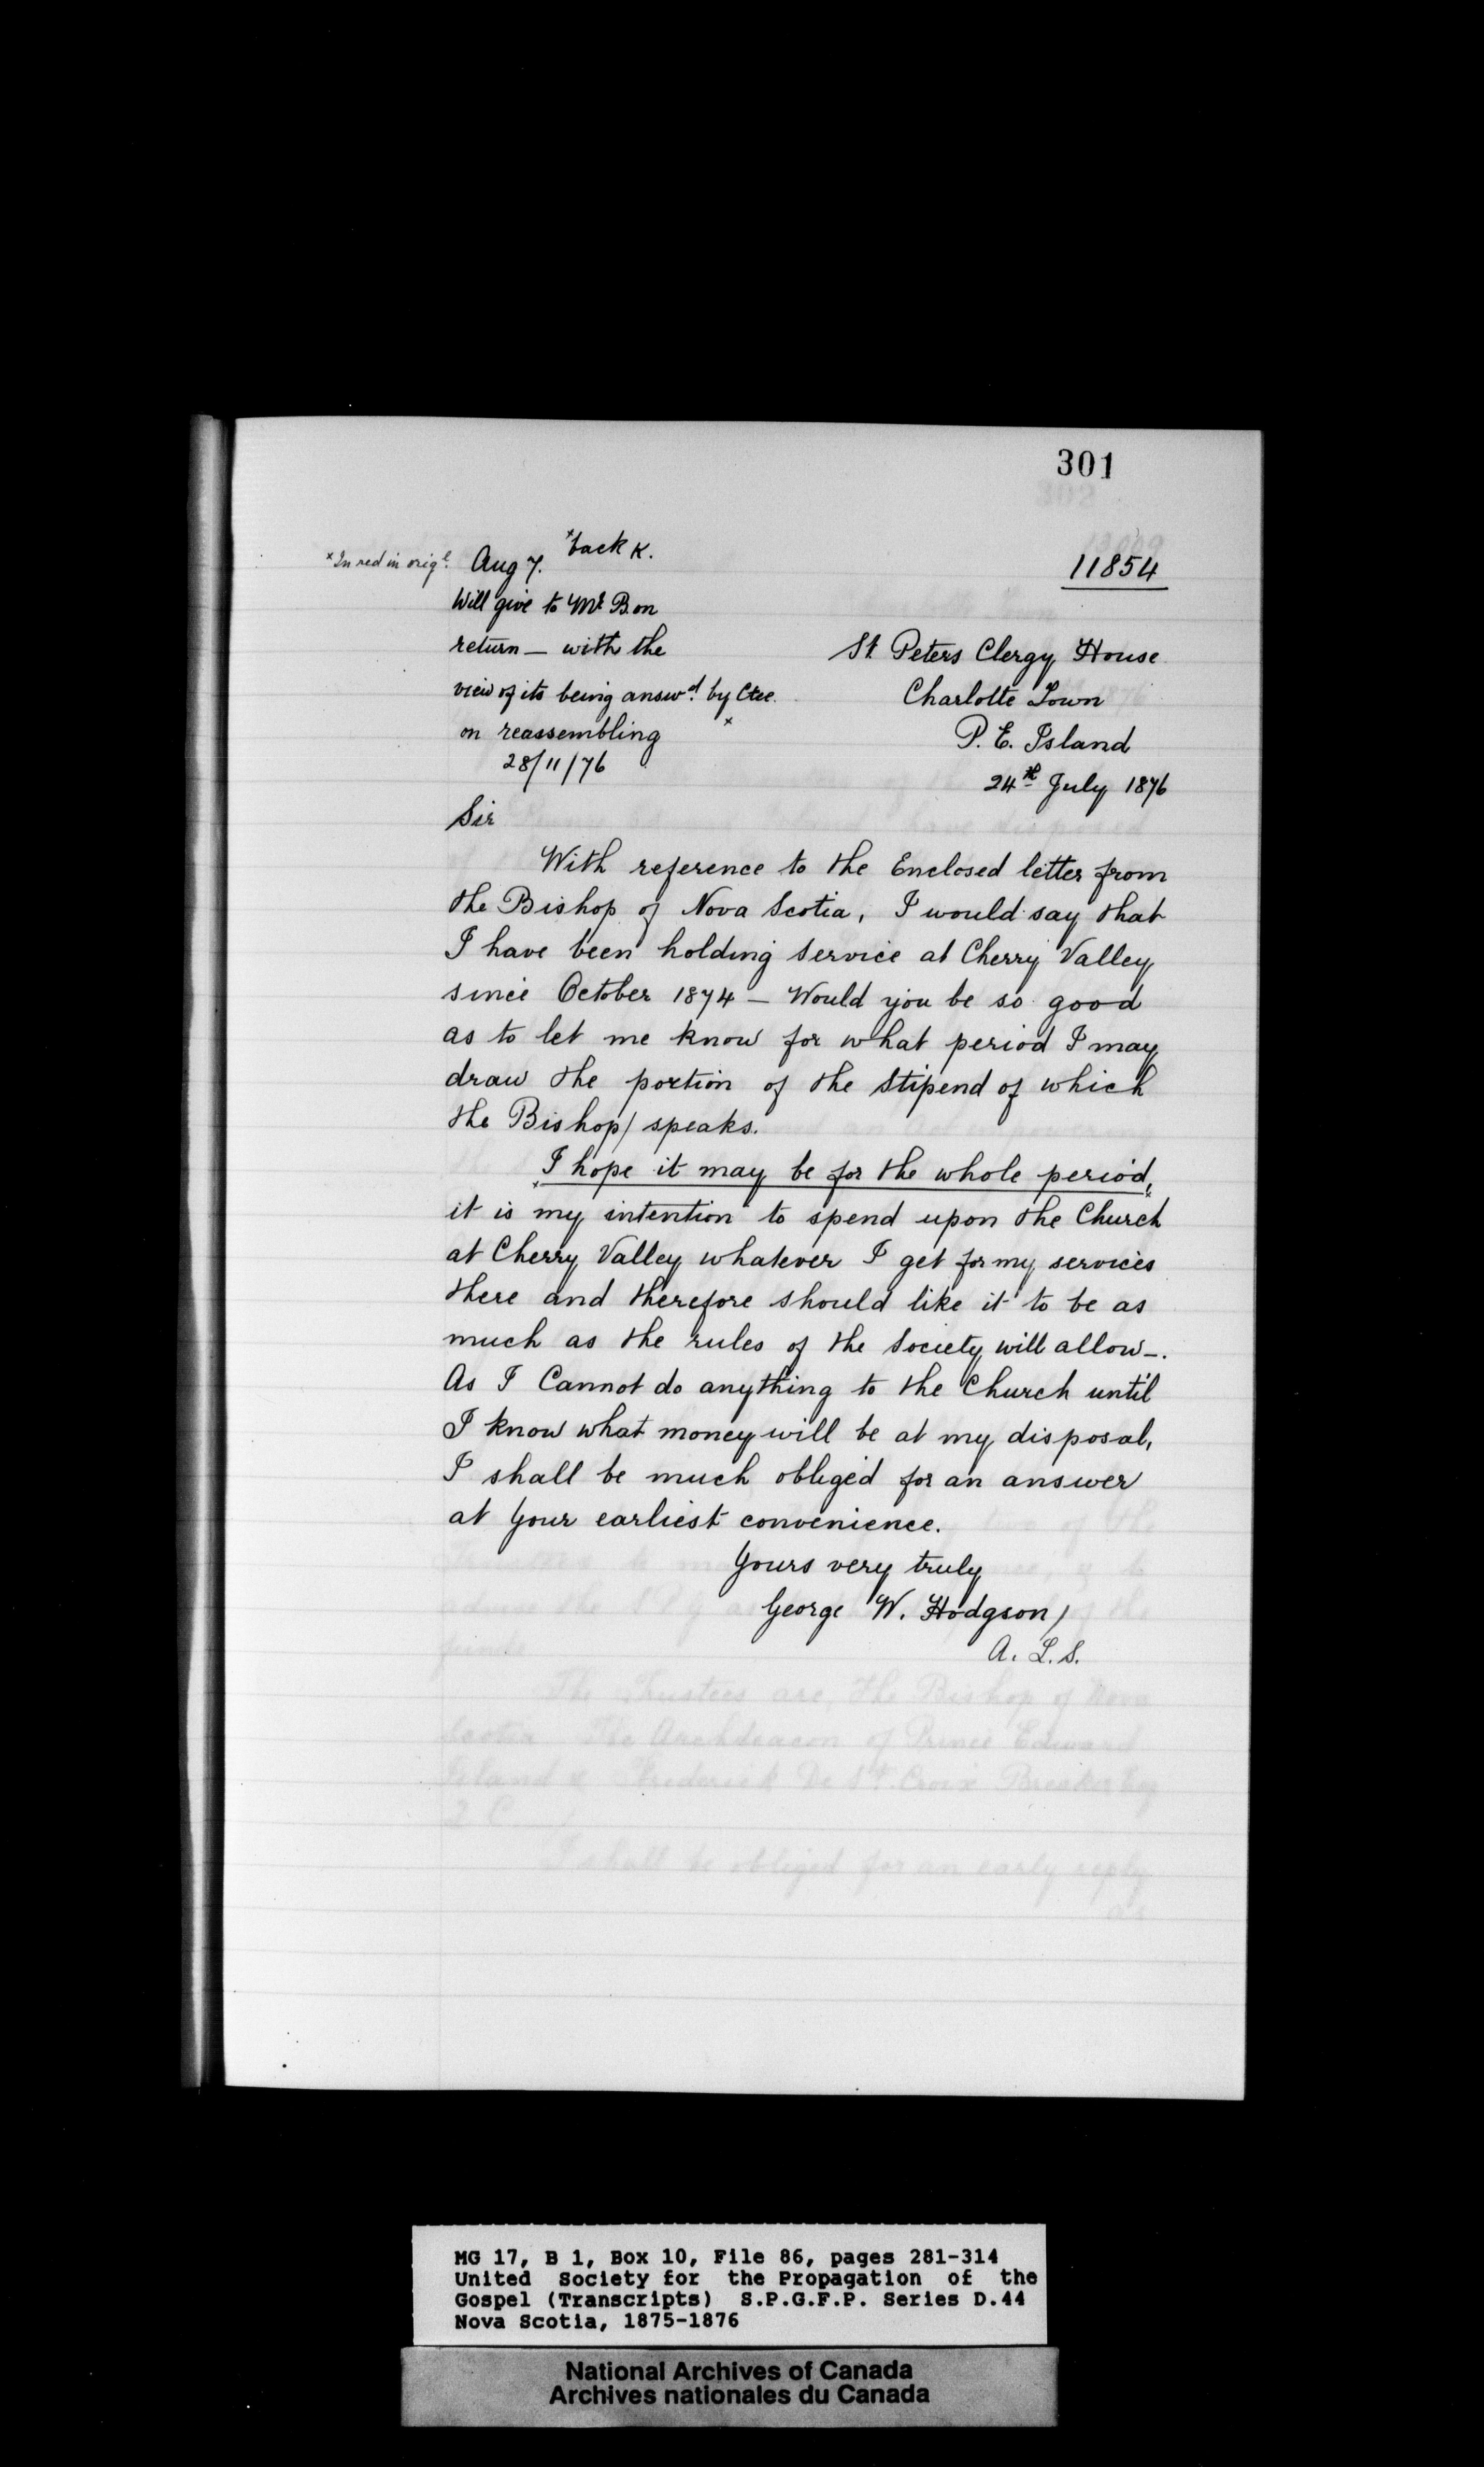 301
*In red in orig.l Aug 7. *back K.
11854
Will give to Mr. B. on
return — with the
view of its being answ.d by Ctee.
on reassembling *
28/11/76
St. Peters Clergy House
Charlotte Town
P. E. Island
24th July 1876
Sir
With reference to the Enclosed letter from
the Bishop of Nova Scotia, I would say that
I have been holding service at Cherry Valley
since October 1874 — Would you be so good
as to let me know for what period I may
draw the portion of the Stipend of which
the Bishop/ speaks.
*I hope it may be for the whole period,*
it is my intention to spend upon the Church
at Cherry Valley whatever I get for my services
there and therefore should like it to be as
much as the rules of the Society will allow —.
As I Cannot do anything to the Church until
I know what money will be at my disposal,
I shall be much obliged for an answer
at your earliest convenience.
Yours very truly
George W. Hodgson/
A. L. S.
MG 17, B 1, Box 10, File 86, pages 281-314
United Society for the Propagation of the
Gospel (Transcripts) S.P.G.F.P. Series D.44
Nova Scotia, 1875-1876
National Archives of Canada
Archives nationales du Canada